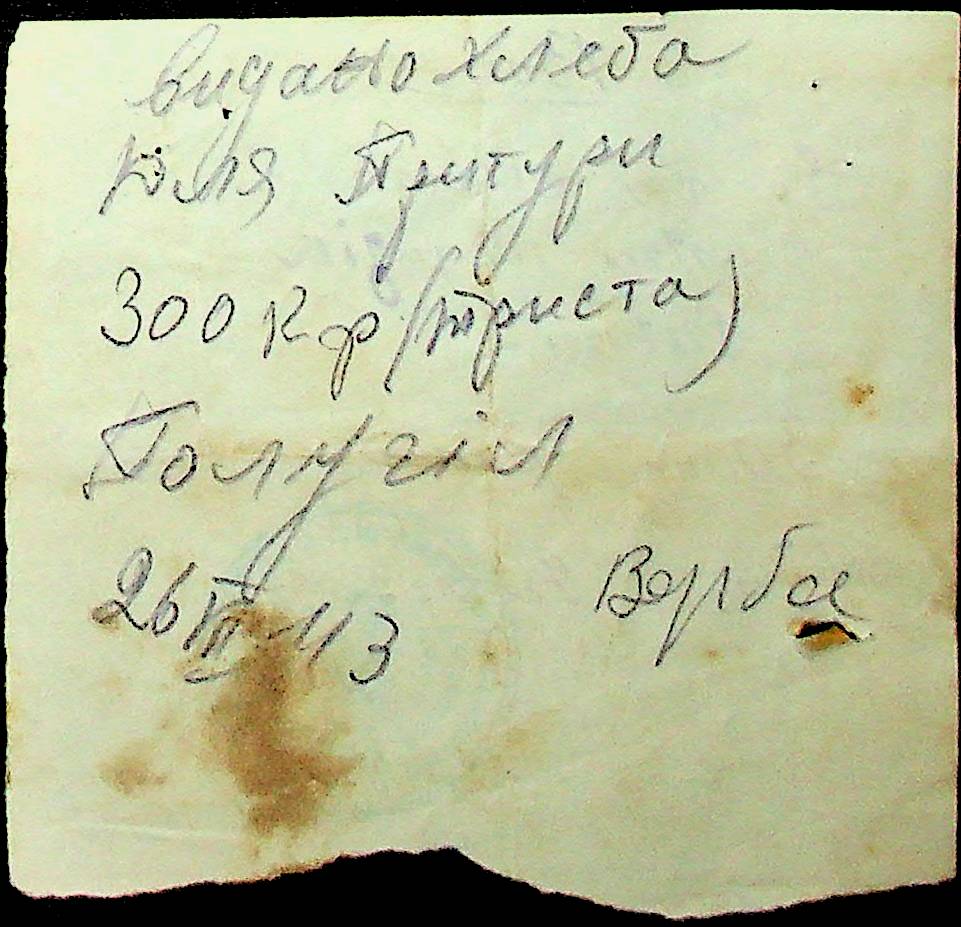 видано хлеба
для Притури
300 Кгр (триста)
Полугіл
26 43 Верба